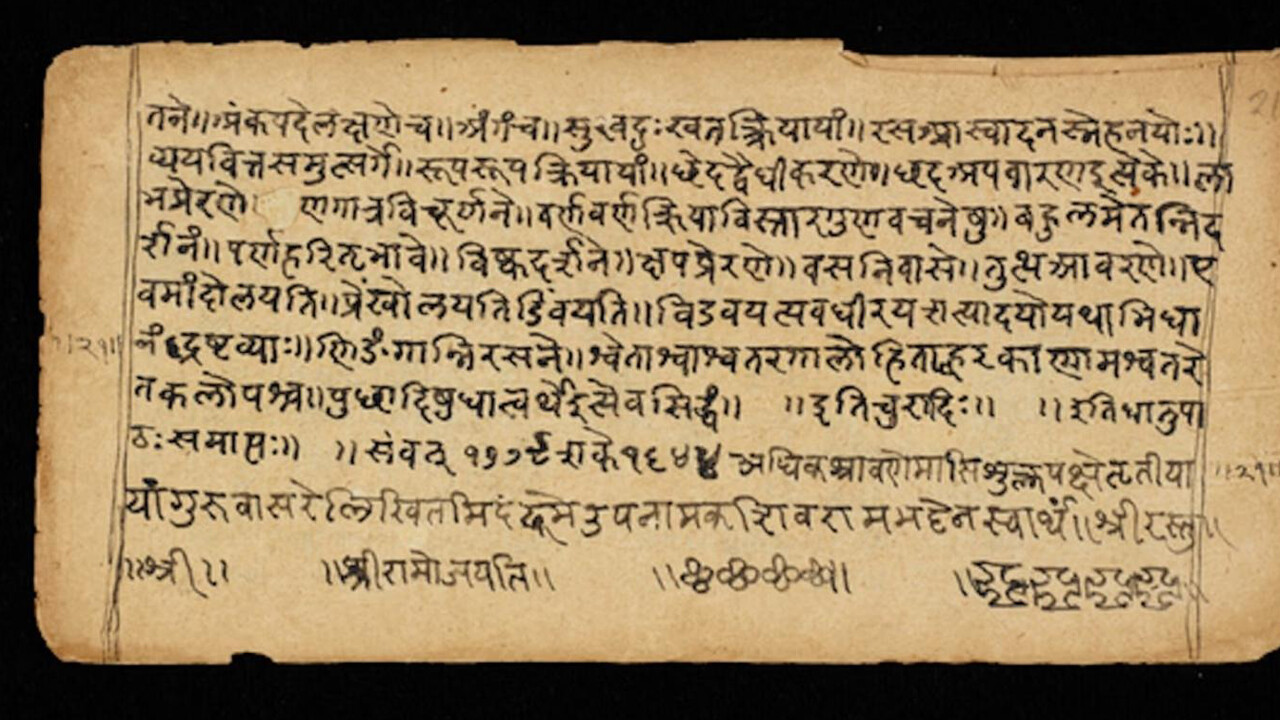 तने॥अंकपदेलक्षणेच॥अंगंच॥सुखदुःखतत्क्रियायां॥रसआस्वादनस्नेहनयोः॥
व्ययवित्तसमुत्सर्गे॥रूपरूपक्रियायां॥छेदद्वैधीकरणे॥छदअपवारणइत्येके॥ला
भप्रेरणे णगात्रविचूर्णने॥वर्णवर्णक्रियाविस्तारगुणवचनेषु॥बहुलमेतन्निद
र्शनं॥पर्णहरितभावे॥विष्कदर्शने॥क्षपप्रेरणे॥वसनिवासे॥तुत्थआवरणे॥ए
वमांदोलयति॥प्रेंखोलयतिडिंवयति॥विडवयत्यवधीरयत्यादयोयथाभिधा
नंद्रष्टव्याः॥णिङंगान्निरसने॥श्वेताश्वाश्वतरगालोडिताह्वरकाणामश्वतरे
तकलोपश्च॥पुछादिषुधात्वर्थइत्येवसिद्धं॥ ॥इतिचुरादिः॥ ॥इतिधातुपा
ठः समाप्तः॥ ॥संवत् १७७९ शके१६४४ अधिकश्रावणेमासिशुक्लपक्षेतृतीया
यांगुरुवासरेलिखितमिदं उपनामक स्वार्थं॥श्रीरस्तु॥
॥श्री॥ ॥श्रीरामोजयति॥
॥२१॥
॥२१॥